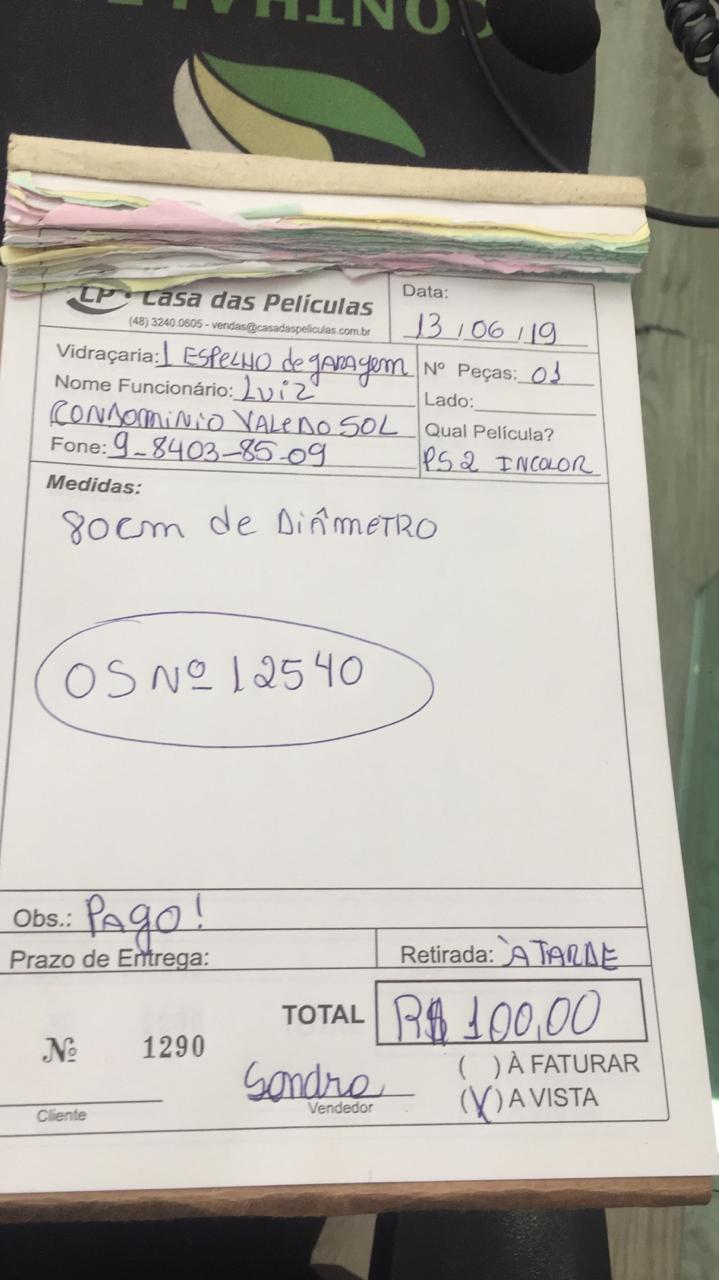 CP Casa das Películas
(48) 3240.0605 - vendas@casadaspeliculas.com.br
Data:
13/06/19
Vidraçaria: 1 ESPELHO de gARAgem
Nome Funcionário: LUIZ
CONDOMINIO VALE DO SOL
Fone: 9-8403-85-09
Nº Peças: 01
Lado:
Qual Película?
PS2 INCOLOR
Medidas:
80cm de DIÂMETRO
OS Nº 12540
Obs.: PAgO!
Prazo de Entrega:
Retirada: À TARDE
TOTAL R$ 100,00
Nº 1290
( ) À FATURAR
(X) A VISTA
Sandra
Cliente
Vendedor